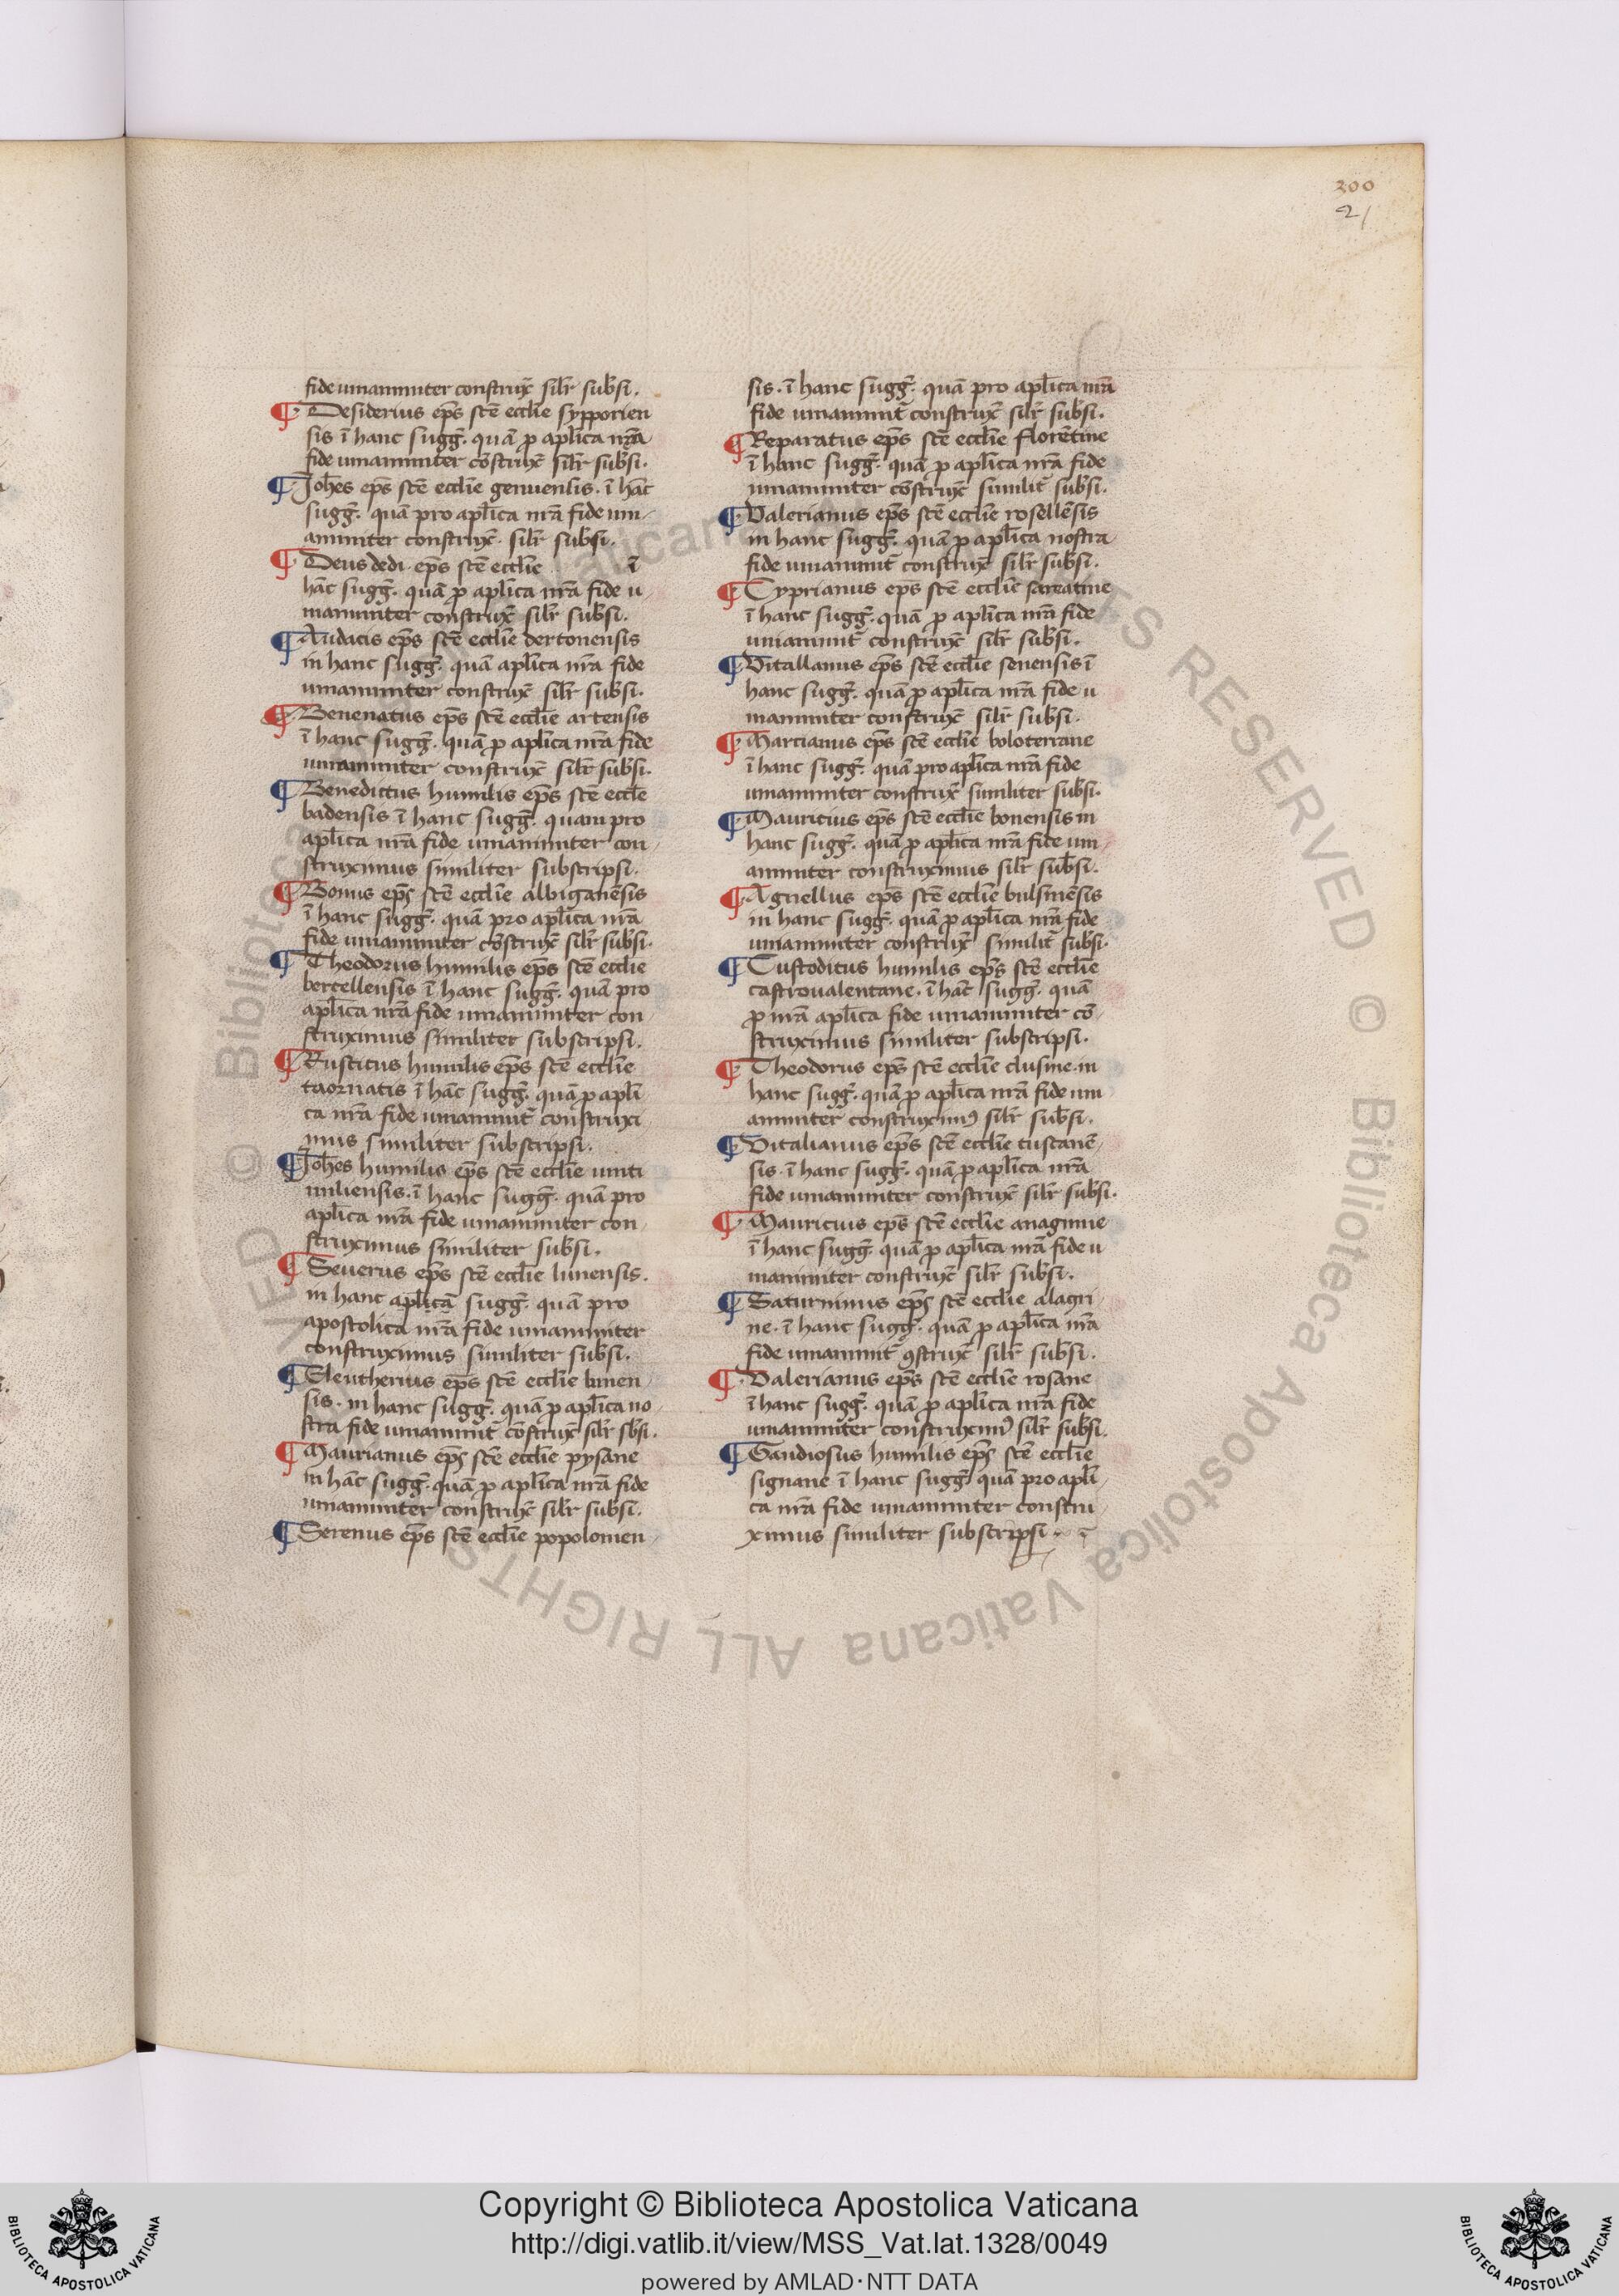 200
21
fide unanimiter construx̄ silr̄ subsi.
¶ Desiderius ep̄s scē eccl̄ie sypporien
sis ī hanc sugḡ. quā p̱ apl̄ica nr̄a
fide unanimiter cōstrux̄ silr̄ subsi.
¶ Joh̄es ep̄s scē eccl̄ie genuensis. ī hāc
sugḡ. quā pro apl̄ica nr̄a fide un
animiter construx̄. silr̄ subsi.
¶ Deus dedi. ep̄s scē eccl̄ie ī
hāc sugḡ. quā p̱ apl̄ica nr̄a fide u
nanimiter construx̄ silr̄ subsi.
¶ Audacis ep̄s scē eccl̄ie dertonensis
in hanc sugḡ. quā apl̄ica nr̄a fide
unanimiter construx̄ silr̄ subsi.
¶ Benenatus ep̄s scē eccl̄ie artensis
ī hanc sugḡ. quā p̱ apl̄ica nr̄a fide
unanimiter construx̄ silr̄ subsi.
¶ Benedictus humilis ep̄s scē eccl̄e
badensis ī hanc sugḡ. quam pro
apl̄ica nr̄a fide unanimiter con
struximus similiter subscripsi.
¶ Bonus ep̄s scē eccl̄ie albiganēsis
ī hanc sugḡ. quā pro apl̄ica nr̄a
fide unanimiter cōstrux̄ silr̄ subsi.
¶ Theodorus humilis ep̄s scē eccl̄ie
bercellensis ī hanc sugḡ. quā pro
apl̄ica nr̄a fide unanimiter con
struximus similiter subscripsi.
¶ Rusticus humilis ep̄s scē eccl̄ie
taornatis ī hāc sugḡ. quā p̱ apl̄i
ca nr̄a fide unanimit̄ construxi
mus similiter subscripsi.
¶ Joh̄es humilis ep̄s scē eccl̄ie uinti
miliensis. ī hanc sugḡ. quā pro
apl̄ica nr̄a fide unanimiter con
struximus similiter subsi.
¶ Seuerus ep̄s scē eccl̄ie lunensis.
in hanc apl̄icā sugḡ. quā pro
apostolica nr̄a fide unanimiter
construximus similiter subsi.
¶ Eleutherius ep̄s scē eccl̄ie lunen
sis. in hanc sugḡ. quā p̱ apl̄ica no
stra fide unanimit̄ cōstrux̄ silr̄ sbsi.
¶ Maurianus ep̄s scē eccl̄ie pysane
in hāc sugḡ. quā p̱ apl̄ica nr̄a fide
unanimiter construx̄ silr̄ subsi.
¶ Serenus ep̄s scē eccl̄ie popolomen
sis. ī hanc sugḡ. quā pro apl̄ica nr̄a
fide unanimit̄ construx̄ silr̄ subsi.
¶ Reparatus ep̄s scē eccl̄ie florētine
ī hanc sugḡ. quā p̱ apl̄ica nr̄a fide
unanimiter cōstrux̄ similit̄ subsi.
¶ Valerianus ep̄s scē eccl̄ie rosellēsis
in hanc sugḡ. quā p̱ apl̄ica nostra
fide unanimit̄ construx̄ silr̄ subsi.
¶ Cyprianus ep̄s scē eccl̄ie sareatine
ī hanc sugḡ. quā p̱ apl̄ica nr̄a fide
unanimit̄ construx̄ silr̄ subsi.
¶ Vitallanus ep̄s scē eccl̄ie senensis ī
hanc sugḡ. quā p̱ apl̄ica nr̄a fide u
nanimiter construx̄ silr̄ subsi.
¶ Marcianus ep̄s scē eccl̄ie boloterrane
ī hanc sugḡ. quā pro apl̄ica nr̄a fide
unanimiter construx̄ similiter subsi.
¶ Mauricius ep̄s scē eccl̄ie bonensis in
hanc sugḡ. quā p̱ apl̄ica nr̄a fide un
animiter construximus silr̄ subsi.
¶ Agnellus ep̄s scē eccl̄ie bulsinēsis
in hanc sugḡ. quā p̱ apl̄ica nr̄a fide
unanimiter construx̄ similit̄ subsi.
¶ Custoditus humilis ep̄s scē eccl̄ie
castroualentane. ī hāc sugḡ. quā
p̱ nr̄a apl̄ica fide unanimiter cō
struximus similiter subscripsi.
¶ Theodorus ep̄s scē eccl̄ie clusine. in
hanc sugḡ. quā p̱ apl̄ica nr̄a fide un
animiter construximꝰ silr̄ subsi.
¶ Vitalianus ep̄s scē eccl̄ie tuscanē
sis. ī hanc sugḡ. quā p̱ apl̄ica nr̄a
fide unanimiter construx̄ silr̄ subsi.
¶ Mauricius ep̄s scē eccl̄ie anagnine
ī hanc sugḡ. quā p̱ apl̄ica nr̄a fide u
nanimiter construx̄ silr̄ subsi.
¶ Saturninus ep̄s scē eccl̄ie alagri
ne. ī hanc sugḡ. quā p̱ apl̄ica nr̄a
fide unanimit̄ ꝯstrux̄ silr̄ subsi.
¶ Valerianus ep̄s scē eccl̄ie rosane
ī hanc sugḡ. quā p̱ apl̄ica nr̄a fide
unanimiter construximꝰ silr̄ subsi.
¶ Gaudiosus humilis ep̄s scē eccl̄ie
signane ī hanc sugḡ quā pro apl̄i
ca nr̄a fide unanimiter constru
ximus similiter subscripsi. ī
© Biblioteca Apostolica Vaticana ALL RIGHTS RESERVED
Copyright © Biblioteca Apostolica Vaticana
http://digi.vatlib.it/view/MSS_Vat.lat.1328/0049
powered by AMLAD·NTT DATA
BIBLIOTECA APOSTOLICA VATICANA
BIBLIOTECA APOSTOLICA VATICANA